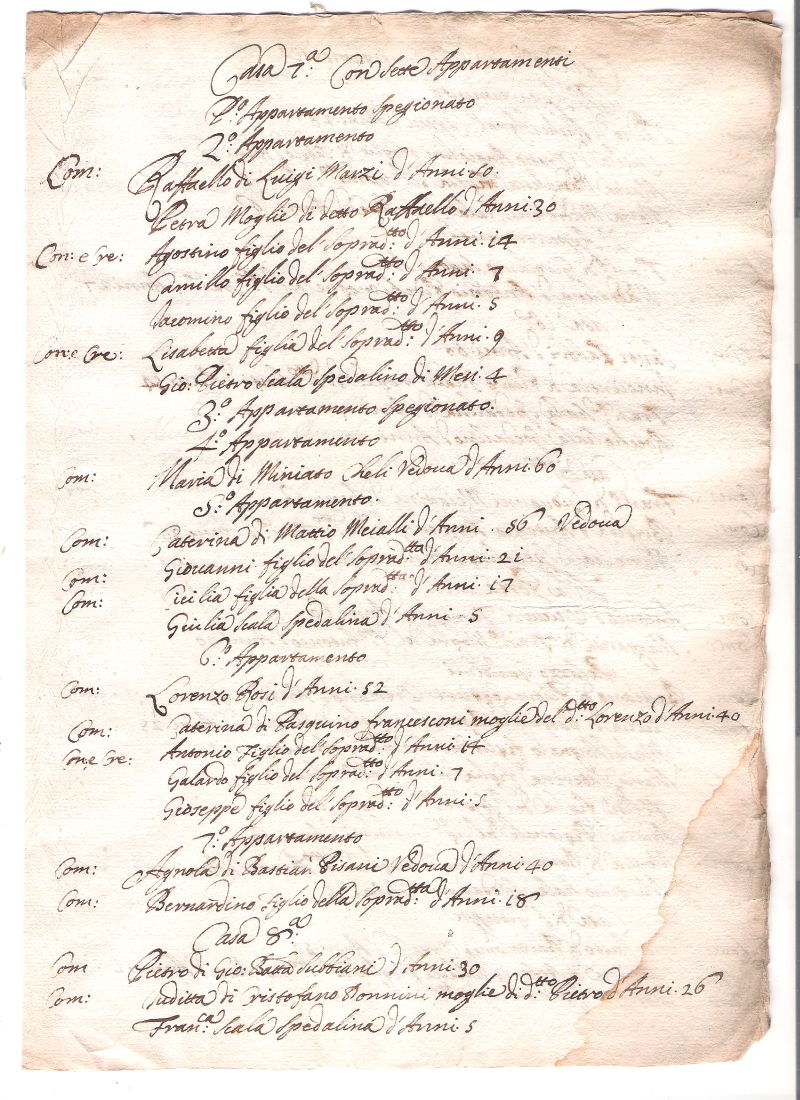 Casa 7.ª Con Sette Appartamenti
P.º Appartamento spegionato
2.º Appartamento
Com: Raffaello di Luigi Marzi d'Anni 50.
Petra Moglie di detto Raffaello d'Anni 30
Con: e Cre: Agostino figlio del soprad.tto: d'Anni 14
Camillo figlio del soprad.tto: d'Anni 7
Iacomino figlio del soprad.tto: d'Anni 5
Con: e Cre: Lisabetta figlia del soprad.tto: d'Anni 9
Gio: Pietro Scala spedalino di Mesi 4
3.º Appartamento spegionato.
4.º Appartamento
Com: Maria di Miniato Cheli Vedova d'Anni 60
5.º Appartamento.
Com: Caterina di Mattio Meialli d'Anni 56 Vedova
Com: Giovanni figlio del soprad.tta d'Anni 21
Com: Cicilia figlia della soprad.tta d'Anni 17
Giulia Scala spedalina d'Anni 5
6.º Appartamento
Com: Lorenzo Rosi d'Anni 52
Com: Caterina di Pasquino francesconi moglie del d.tto: Lorenzo d'Anni 40
Con e Cre: Antonio figlio del soprad.tto: d'Anni 14
Galardo figlio del soprad.tto: d'Anni 7
Gioseppe figlio del soprad.tto: d'Anni 5
7.º Appartamento
Com: Agnola di Bastian Pisani Vedova d'Anni 40
Com: Bernardino figlio della soprad.tta: d'Anni 18
Casa 8.ª
Com Pietro di Gio: Batta Subbiani d'Anni 30
Com: Iuditta di Cristofano Donnini moglie di d.tto: Pietro d'Anni 26
Fran.ca: Scala spedalina d'Anni 5